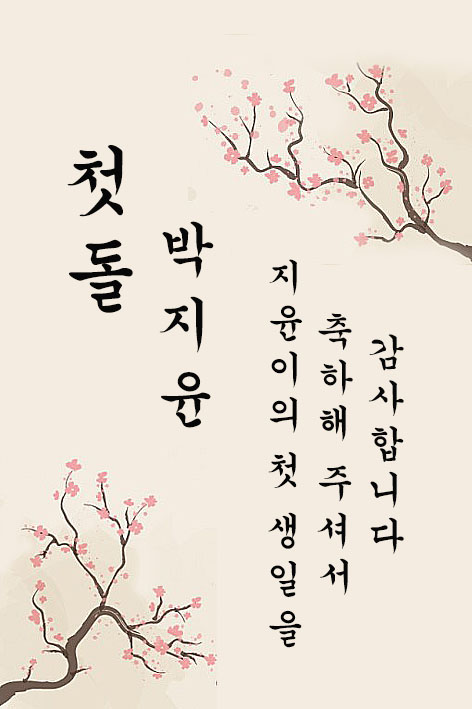 첫돌
박지윤
지윤이의 첫 생일을
축하해 주셔서
감사합니다